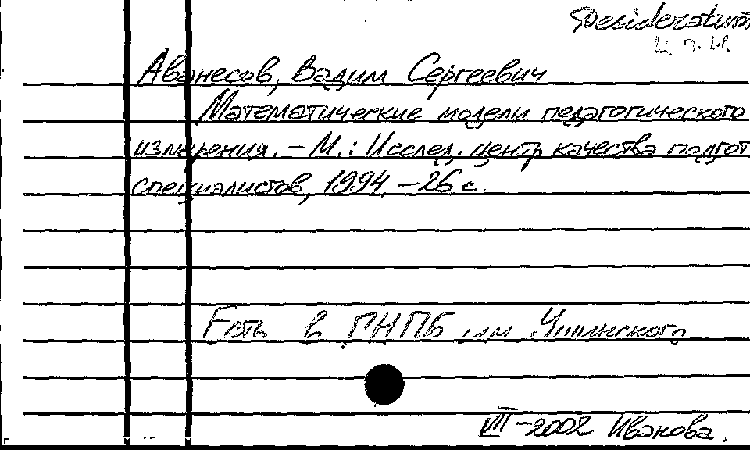 Desideratum
Аванесов, Вадим Сергеевич
Математические модели педагогического
измерения. – М.: Исслед. центр качества подгот
специалистов, 1994. – 26 с.
Есть в ГНПБ им Ушинского
VII – 2002 Иванова.